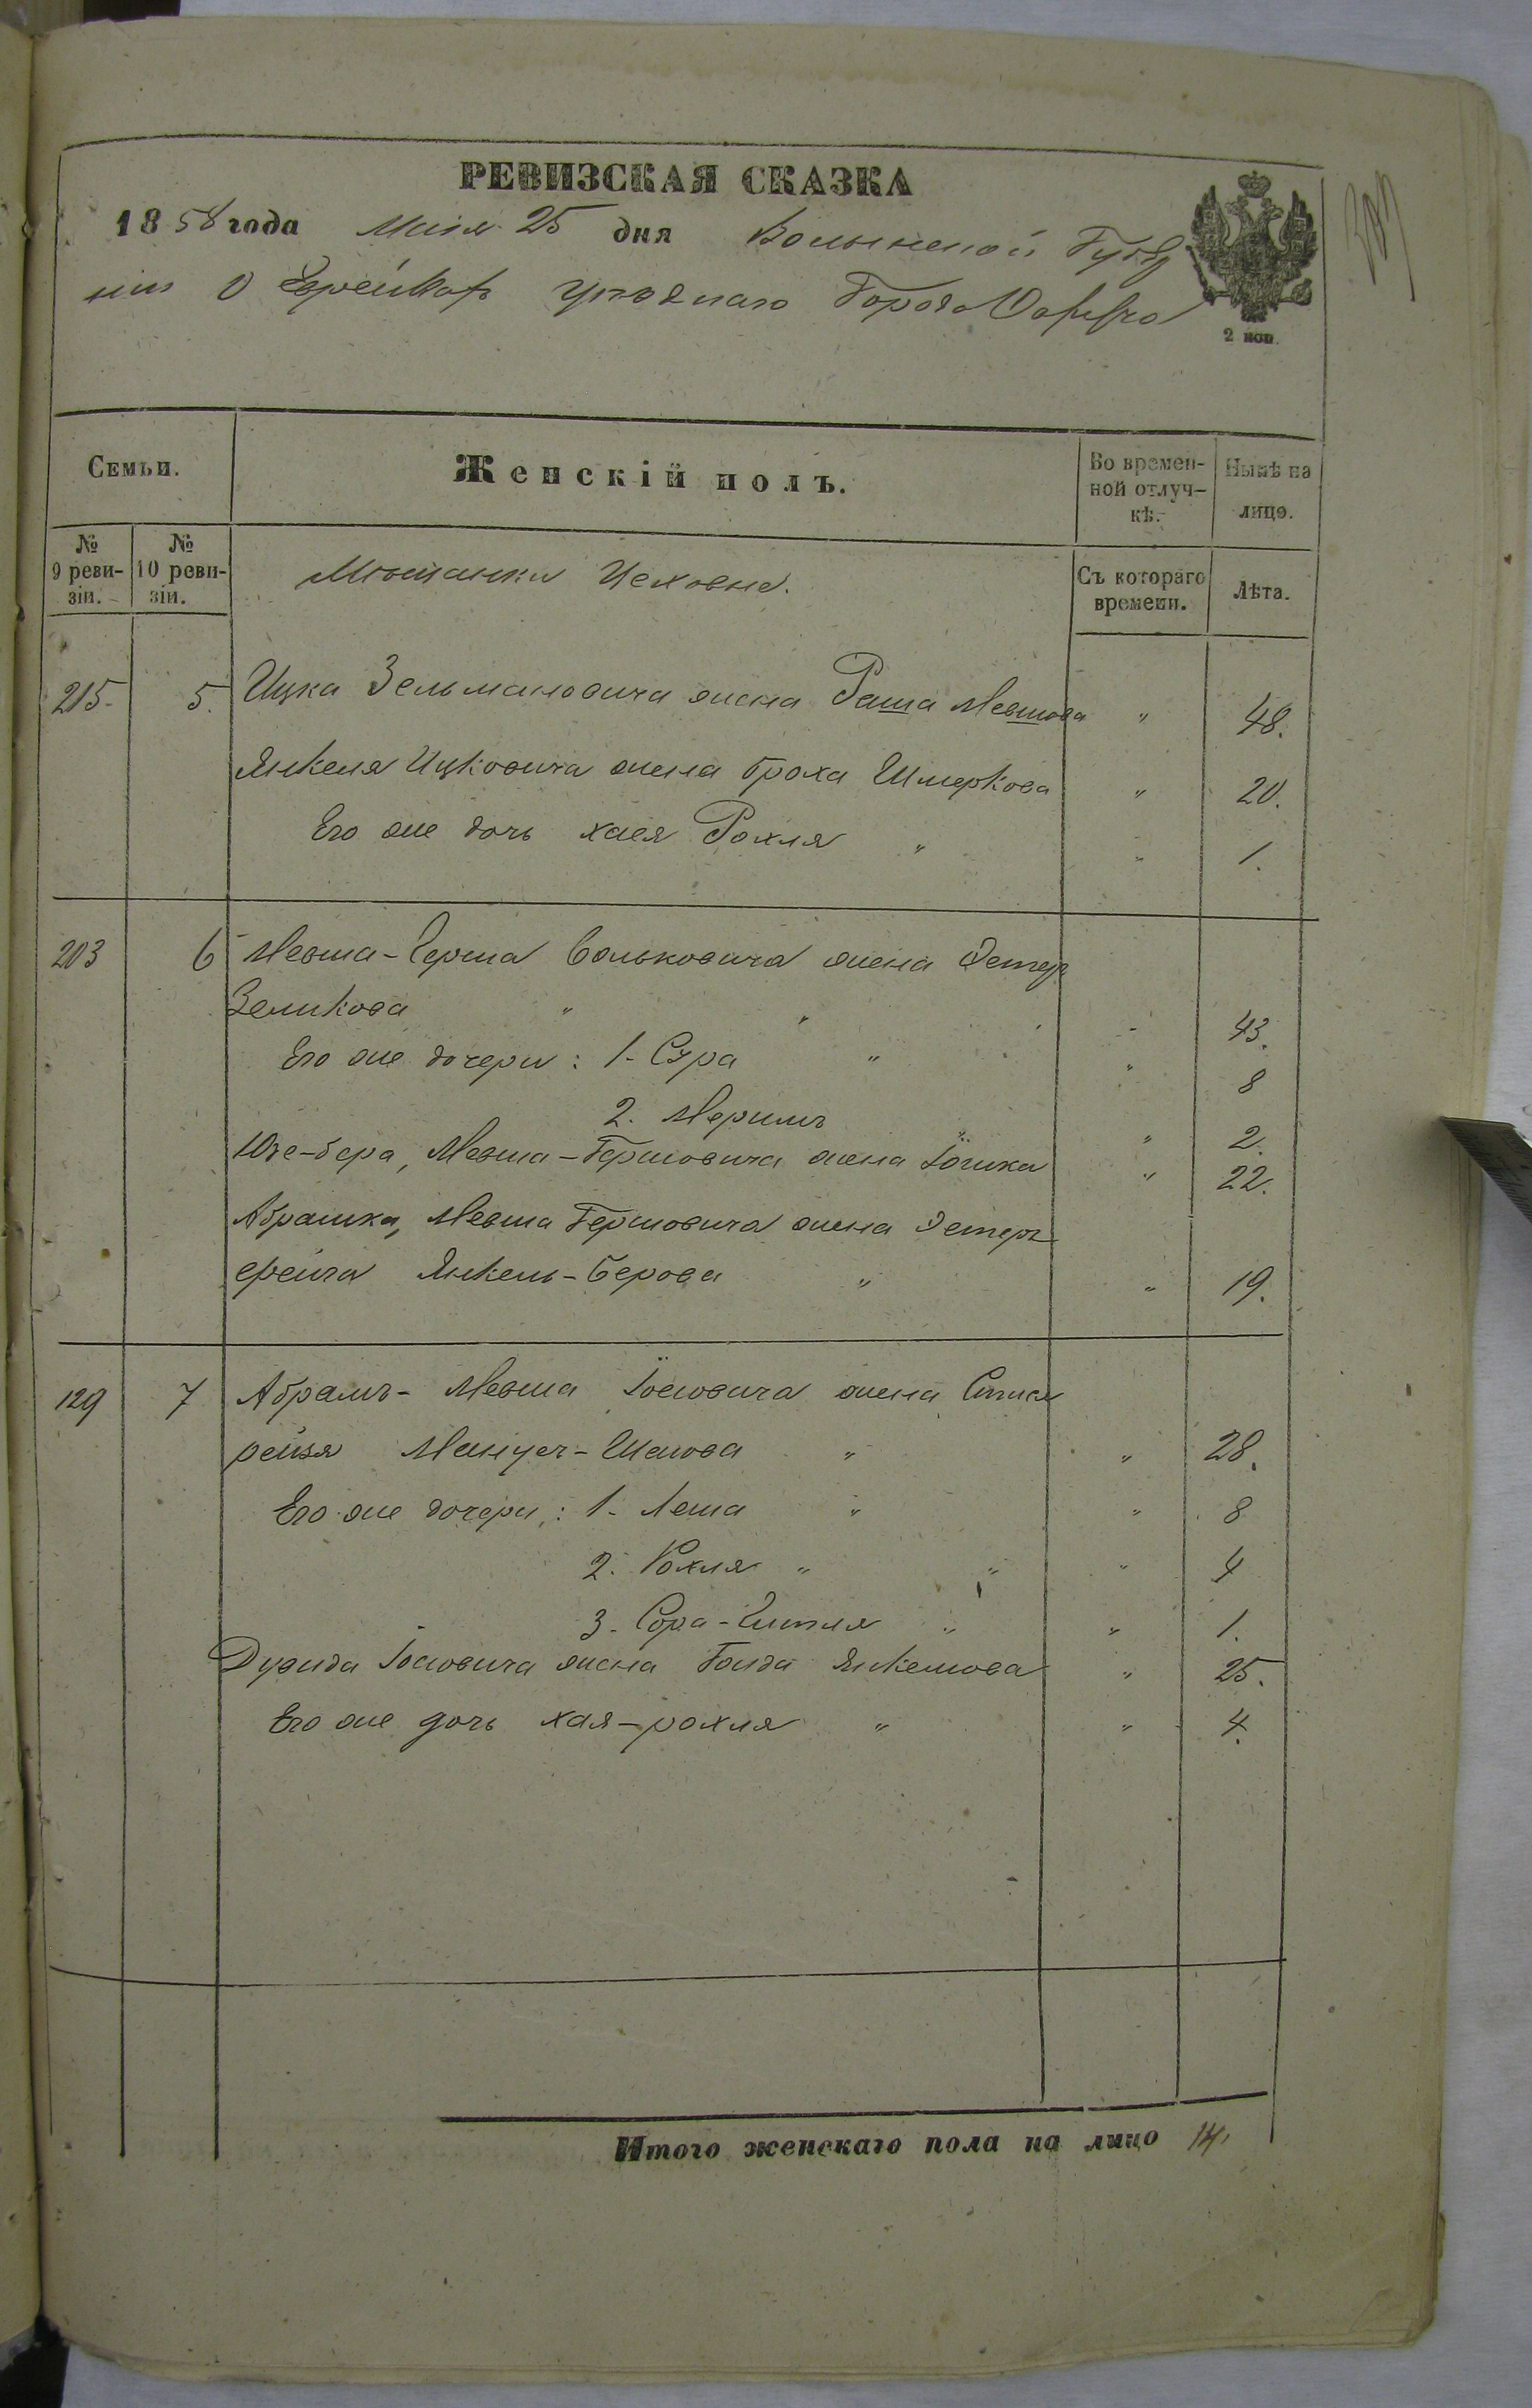 РЕВИЗСКАЯ СКАЗКА
1858 года Маія 25 дня Волынской Губер
ніи О Евреяхъ уезднаго Города
2 коп.
Семьи.
Женскій полъ.
Во времен-
ной отлуч-
кѣ.
Нынѣ на
лицо.
№
9 реви-
зіи.
№
10 реви-
зіи.
Мѣщанки
Съ котораго
времени.
Лѣта.
215. 5. Ицка Зельмановича жена Раша Мевшова " 48.
Янкеля Ицковича жена Броха Шмеркова " 20.
Его же дочь Хаея Рохля " " 1.
203 6 Мевша-Герша Вольковича жена Эстер
Зеликова " " " - 43.
Его же дочери: 1. Сура " " 8
2. Меримъ " " 2.
Юзе-Бера, Мевша-Гершовича жена " 22.
Абрамка, Мевша Гершовича жена Эстеръ
фейга Янкель-Берова " " 19.
129 7 Абрамъ-Мевша Іосіовича жена
рейзя Шаіова " " 28.
Его же дочери: 1. Леша " " 8
2. Рохля " " " 4
3. Сора-Гитля " " 1.
Дувида Іосіовича жена Голда Янкелиова " 25.
Его же дочь хая-рохля " " 4.
Итого женскаго пола на лицо 14.